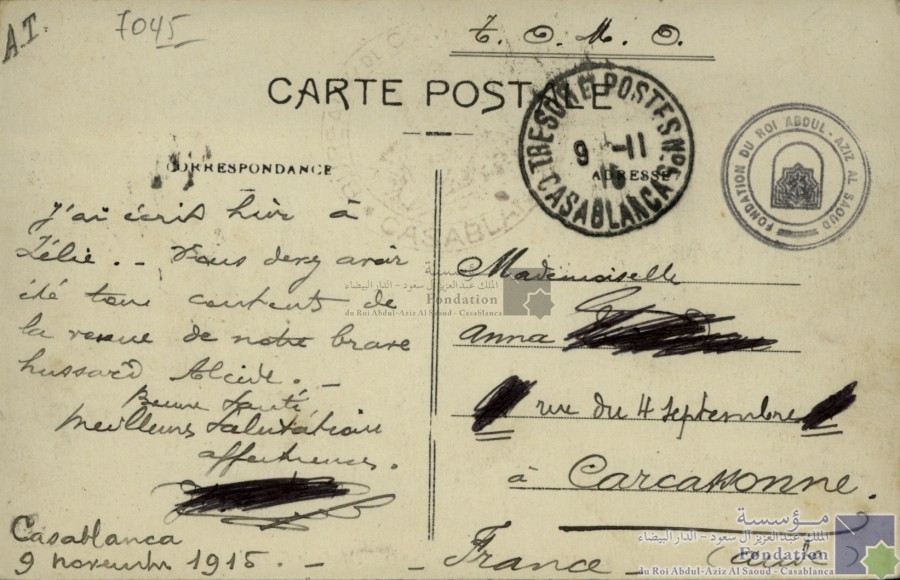 A.T.
7045
T. O. M. O.
CARTE POSTALE
TRESOR ET POSTES Nº
CASABLANCA
9 -11
15
FONDATION DU ROI ABDUL-AZIZ AL SAOUD
CORRESPONDANCE
ADRESSE
J'ai écrit hier à
Zélie. - Vous devez avoir
été tous contents de
la venue de notre brave
hussard Alcide. -
Bonne Santé
Meilleures Salutations
affectueuses.
Casablanca
9 novembre 1915.
Mademoiselle
Anna
rue du 4 Septembre
à Carcassonne.
France (Aude)
CASABLANCA
مؤسسة
الملك عبد العزيز آل سعود - الدار البيضاء
Fondation
du Roi Abdul-Aziz Al Saoud - Casablanca
مؤسسة
الملك عبد العزيز آل سعود - الدار البيضاء
Fondation
du Roi Abdul-Aziz Al Saoud - Casablanca